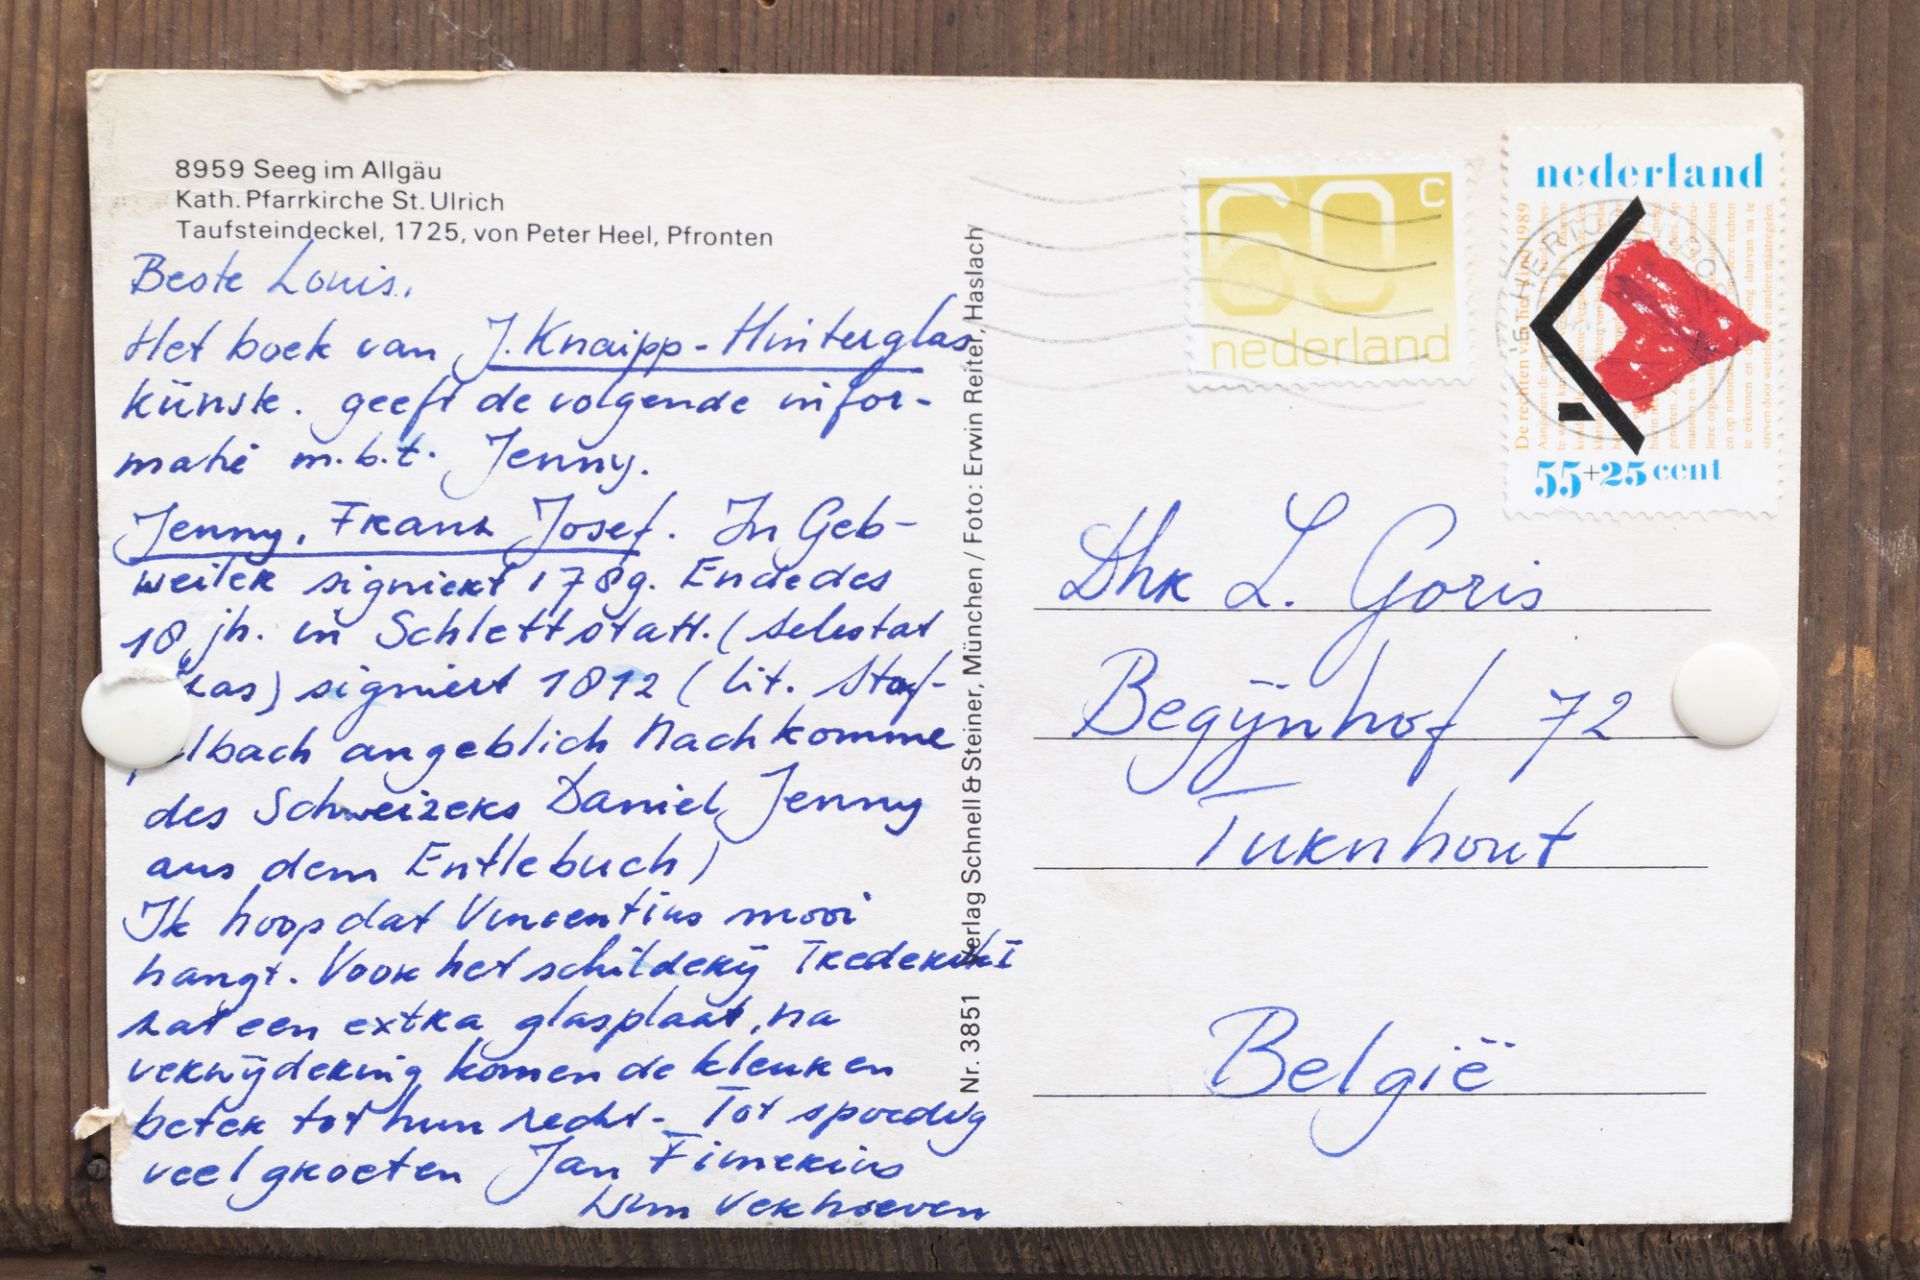 8959 Seeg im Allgäu
Kath. Pfarrkirche St. Ulrich
Taufsteindeckel, 1725, von Peter Heel, Pfronten
Beste Louis,
Het boek van J. Knaipp - Hinterglas
künste. geeft de volgende infor-
matie m.b.t. Jenny.
Jenny, Franz Josef. In Geb-
weiler signiert 1789. Ende des
18 jh. in Schlettstatt. (Selestat
) signiert 1812 (lit. Staf-
lbach angeblich Nachkomme
des Schweizers Daniel Jenny
aus dem Entlebuch)
Ik hoop dat Vincentius mooi
hangt. Voor het schilderij
zat een extra glasplaat, na
verwijdering komen de kleuren
beter tot hun recht - Tot spoedig
veel groeten Jan Fimerius
Wim Verhoeven
Nr. 3851 Verlag Schnell & Steiner, München / Foto: Erwin Reiter, Haslach
60 c
nederland
nederland
De rechten van het kind 1989
55+25 cent
Dhr L. Goris
Begijnhof 72
Turnhout
België